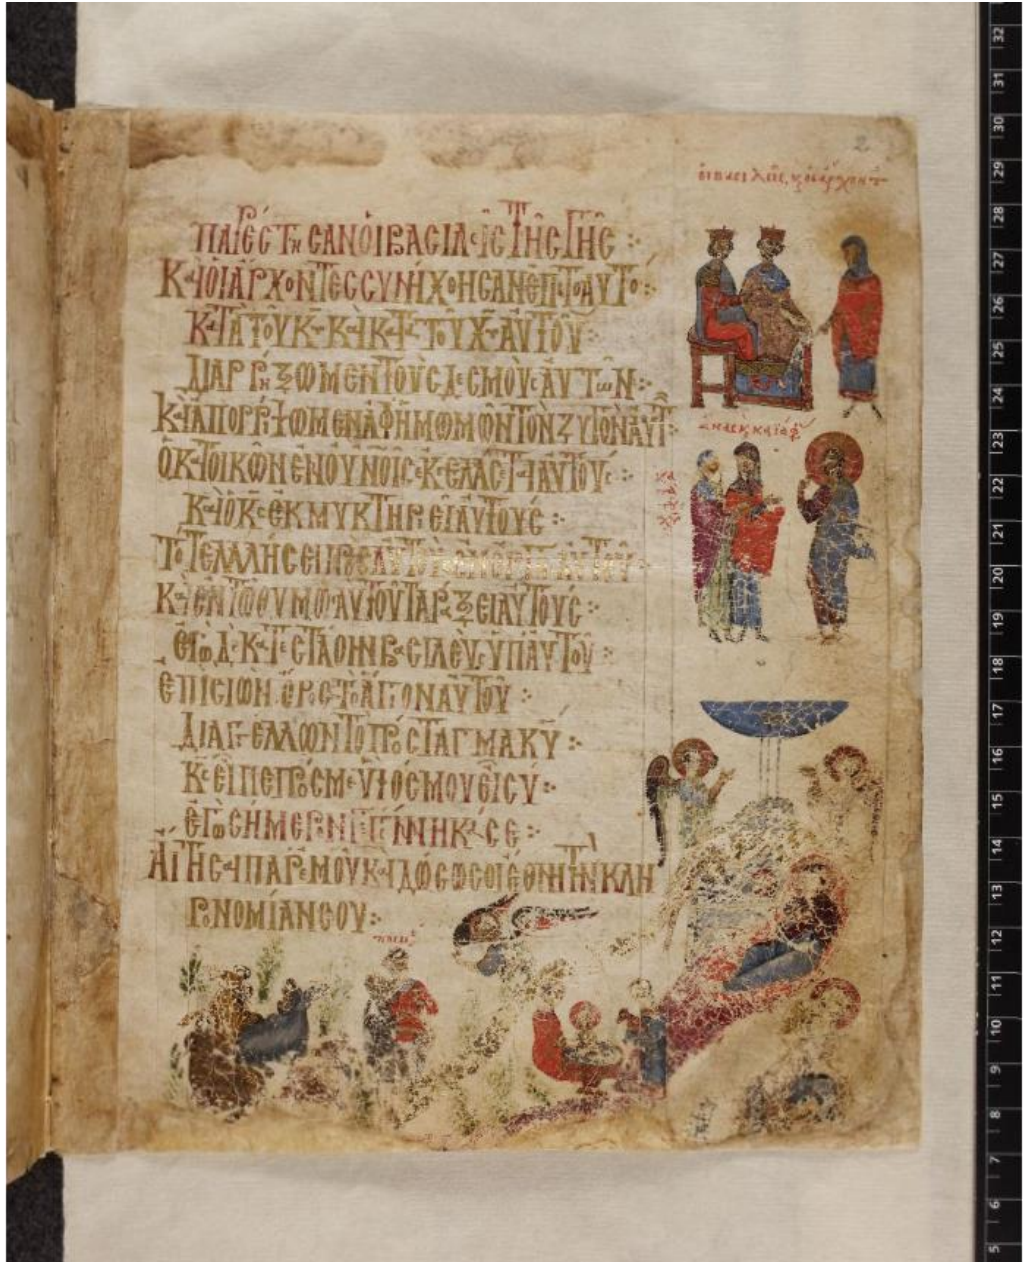 2
οι βασιλεῖς, κ οι ἄρχοντ
ΠΑΡΕΣΤΗΣΑΝ ΟΙ ΒΑΣΙΛΕΙΣ ΤΗΣ ΓΗΣ:
Κ ΟΙ ΑΡΧΟΝΤΕΣ ΣΥΝΗΧΘΗΣΑΝ ΕΠΙ ΤΟ ΑΥΤΟ:
ΚΑΤΑ ΤΟΥ Κ̅Υ̅ Κ ΚΑΤΑ ΤΟΥ Χ̅Υ̅ ΑΥΤΟΥ:
ΔΙΑΡΡΗΞΩΜΕΝ ΤΟΥΣ ΔΕΣΜΟΥΣ ΑΥΤΩΝ:
Κ ΑΠΟΡΡΙΨΩΜΕΝ ΑΦ ΗΜΩΝ ΤΟΝ ΖΥΓΟΝ ΑΥΤ:
Ο ΚΑΤΟΙΚΩΝ ΕΝ ΟΥΝΟΙΣ ΕΚΓΕΛΑΣΕΤΑΙ ΑΥΤΟΥΣ:
Κ Ο Κ̅Σ̅ ΕΚΜΥΚΤΗΡΙΕΙ ΑΥΤΟΥΣ:
ΤΟΤΕ ΛΑΛΗΣΕΙ ΠΡΟΣ ΑΥΤΟΥΣ ΕΝ ΟΡΓΗ ΑΥΤΟΥ
Κ ΕΝ ΤΩ ΘΥΜΩ ΑΥΤΟΥ ΤΑΡΑΞΕΙ ΑΥΤΟΥΣ:
ΕΓΩ ΔΕ ΚΑΤΕΣΤΑΘΗΝ ΒΑΣΙΛΕΥΣ ΥΠ ΑΥΤΟΥ:
ΕΠΙ ΣΙΩΝ ΟΡΟΣ ΤΟ ΑΓΙΟΝ ΑΥΤΟΥ:
ΔΙΑΓΓΕΛΛΩΝ ΤΟ ΠΡΟΣΤΑΓΜΑ Κ̅Υ̅:
Κ̅Σ̅ ΕΙΠΕ ΠΡΟΣ ΜΕ ΥΙΟΣ ΜΟΥ ΕΙ ΣΥ:
ΕΓΩ ΣΗΜΕΡΟΝ ΓΕΓΕΝΝΗΚΑ ΣΕ:
ΑΙΤΗΣΑΙ ΠΑΡ ΕΜΟΥ Κ ΔΩΣΩ ΣΟΙ ΕΘΝΗ ΤΗΝ ΚΛΗ
ΡΟΝΟΜΙΑΝ ΣΟΥ:
ἄννας κ καϊάφ